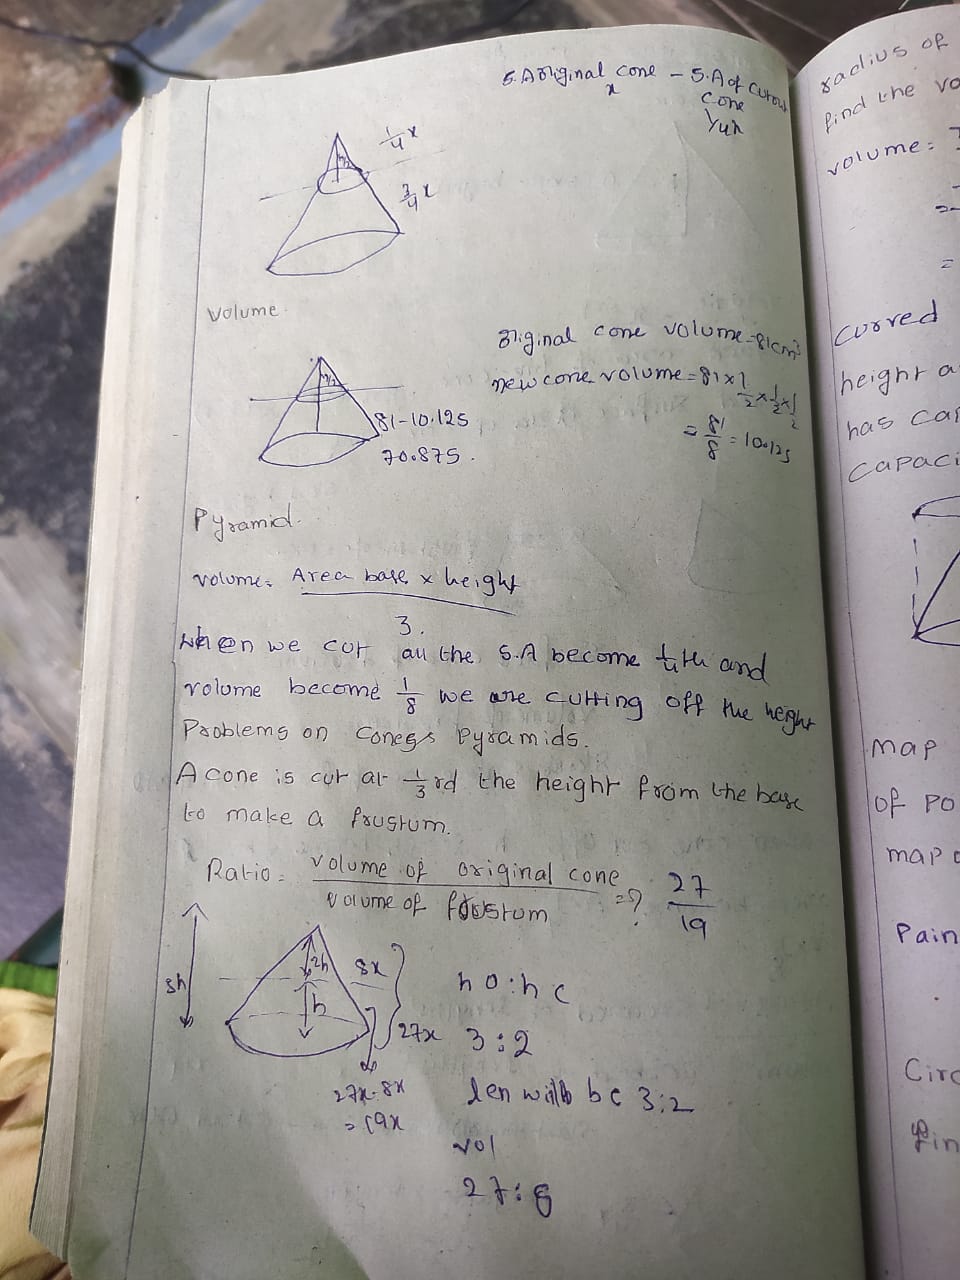 S.A original cone - S.A of cutout
x cone
1/4x
1/4 x
3/4 x
h/2
volume
original cone volume = 81cm³
new cone volume = 81 x 1
1/2 x 1/2 x 1/2
= 81/8 = 10.125
h/2
81-10.125
70.875.
Pyramid.
volume = Area base x height
3.
when we cut all the S.A become 1/4th and
volume become 1/8 we are cutting off the height
Problems on cones Pyramids.
A cone is cut at 1/3rd the height from the base
to make a frustum.
Ratio = volume of original cone
volume of frustum
= ? 27/19
3h
2h
h
8x
27x
27x-8x
= 19x
h o : h c
3 : 2
len will be 3:2
vol
27:8
radius of
find the vo
volume =
=
=
curved
height a
has cap
capaci
map
of po
map o
Pain
Circ
fin